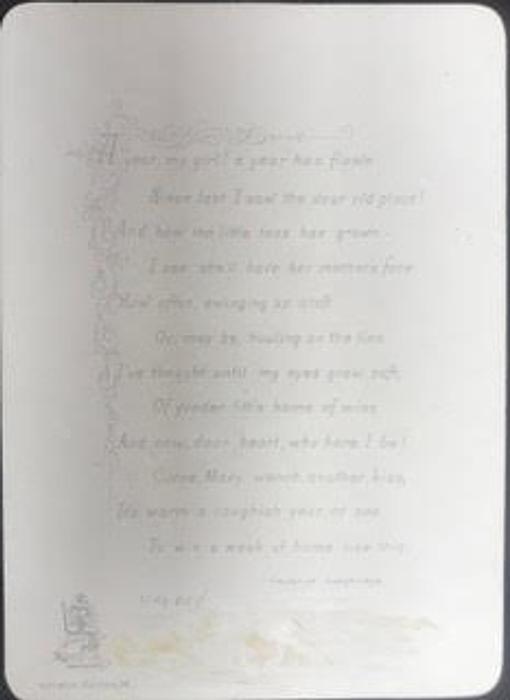 A year, my girl! a year has flown
Since last I saw the dear old place!
And how the little lass has grown
I see she'll have her mothers face
How often, swinging up aloft
Or, may be, hauling on the line
I've thought until my eyes grew soft,
Of yonder little home of mine
And now, dear heart, who here I be!
Come, Mary wench, another kiss,
It's worth a roughish year at sea
To win a week of home like this